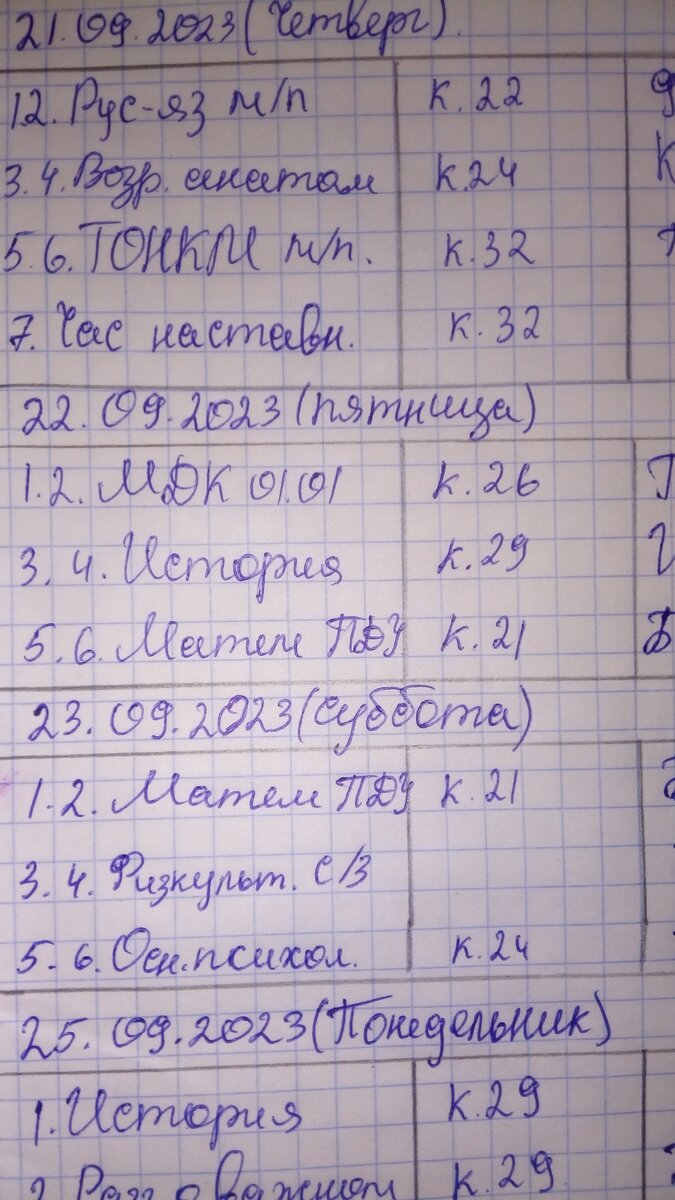 21.09.2023 (Четверг).
1.2. Рус-яз м/п к. 22
3.4. Возр. анатом к.24
5.6. ТОНКМ м/п. к.32
7. Час наставн. к.32
22.09.2023 (пятница)
1.2. МДК 01.01 к. 26
3.4. История к.29
5.6. Матем ПДУ к.21
23.09.2023 (суббота)
1.2. Матем ПДУ к.21
3.4. Физкульт. с/з
5.6. Осн.психол. к.24
25.09.2023 (Понедельник)
1. История к.29
2. Разг о важном к.29